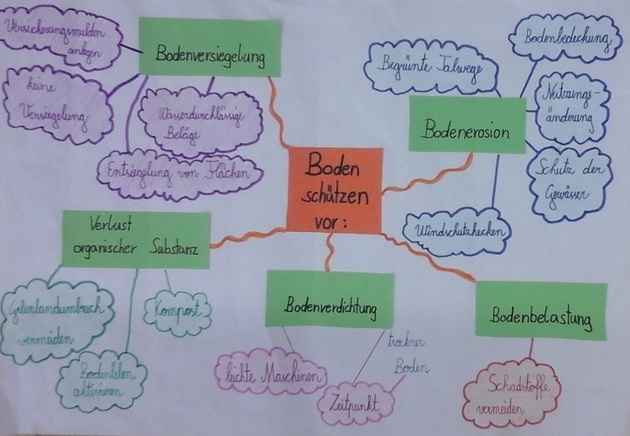 Versickerungsmulden
anlegen
Bodenversiegelung
keine
Versiegelung
Wasserdurchlässige
Beläge
Entsiegelung von Flächen
Begrünte Talwege
Bodenbedeckung
Nutzungs-
änderung
Bodenerosion
Schutz der
Gewässer
Windschutzhecken
Boden
schützen
vor:
Verlust
organischer Substanz
Grünlandumbruch
vermeiden
Kompost
Bodenleben
aktivieren
Bodenverdichtung
leichte Maschinen
trockner
Boden
Zeitpunkt
Bodenbelastung
Schadstoffe
vermeiden